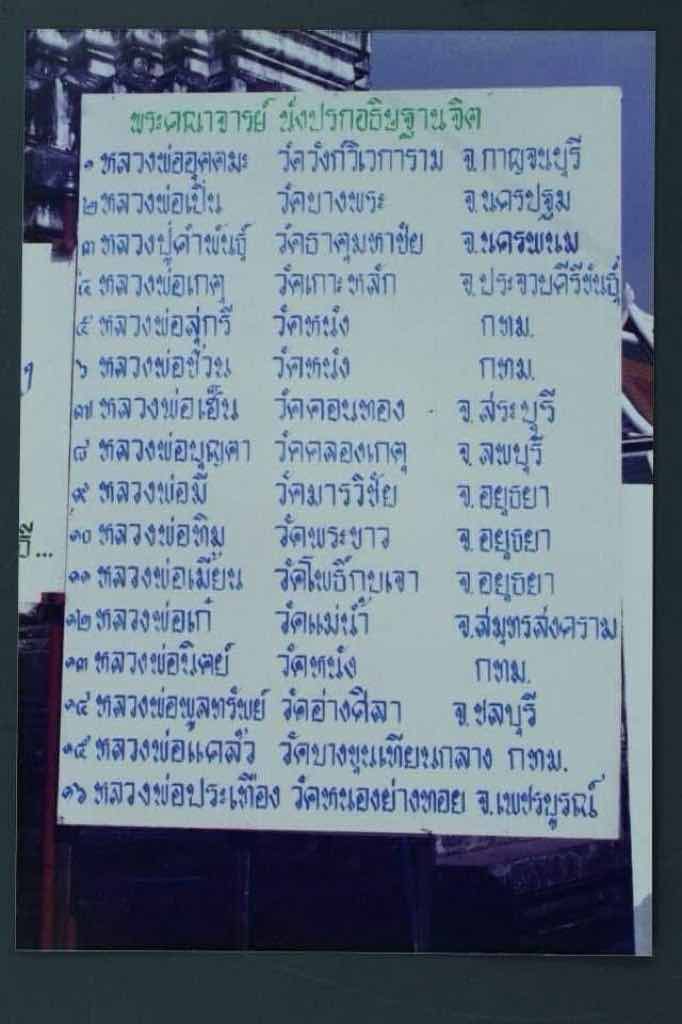 พระคณาจารย์ นั่งปรกอธิษฐานจิต
๑ หลวงพ่ออุตตมะ วัดวังก์วิเวการาม จ.กาญจนบุรี
๒ หลวงพ่อเปิ่น วัดบางพระ จ.นครปฐม
๓ หลวงปู่คำพันธุ์ วัดธาตุมหาชัย จ.นครพนม
๔ หลวงพ่อเกตุ วัดเกาะหลัก จ.ประจวบคีรีขันธุ์
๕ หลวงพ่อสุ่กรี วัดหนัง กทม.
๖ หลวงพ่อช่วน วัดหนัง กทม.
๗ หลวงพ่อเฮ็น วัดดอนทอง จ.สระบุรี
๘ หลวงพ่อบุญตา วัดคลองเกตุ จ.ลพบุรี
๙ หลวงพ่อมี วัดมารวิชัย จ.อยุธยา
๑๐ หลวงพ่อทิม วัดพระขาว จ.อยุธยา
๑๑ หลวงพ่อเมี้ยน วัดโพธิ์กบเจา จ.อยุธยา
๑๒ หลวงพ่อเก๋ วัดแม่น้ำ จ.สมุทรสงคราม
๑๓ หลวงพ่อนิตย์ วัดหนัง กทม.
๑๔ หลวงพ่อพูลทรัพย์ วัดอ่างศิลา จ.ชลบุรี
๑๕ หลวงพ่อแคล้ว วัดบางขุนเทียนกลาง กทม.
๑๖ หลวงพ่อประเทือง วัดหนองย่างทอย จ.เพชรบูรณ์